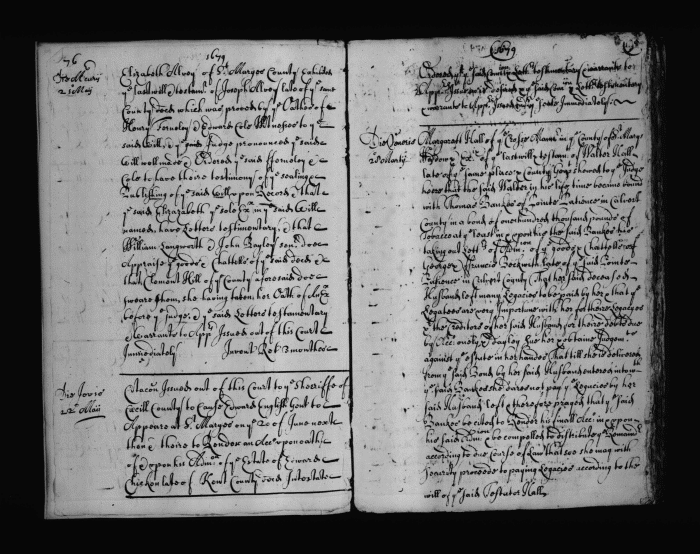 76
1679
Die Mercurij
21 Maij
Elizabeth Alvey of St Maryes County Exhibited
ye last will & testamt of Joseph Alvey late of ye same
County decd which was proved by ye Oathes of
Henry Forneley & Edward Cole Witnesses to ye
said Will, & ye said Judge pronounced ye said
Will well proved & Ordered ye said fforneley &
Cole to have theire testimony of ye sealing &
Publishing of ye said will upon Record, & that
ye said Elizabeth ye sole Exx in ye said Will
named, have Letters testamentary, & that
William Langworth & John Bayley senr doe
Appraise ye goods & Chattells of ye said decd &
that Clement Hill of ye County aforesaid doe
sweare them, she having taken her Oath of Exx
before ye Judge, & ye said Letters testamentary
& Warrants to Appr Issued out of this Court
Immediately Invent Ret 3 monthes
Die Jovis
22 Maij
Citacon Issued out of this Court to ye Sheriffe of
Cecill County to Cause Edward English Gent to
Appeare att St Maryes on ye 20 of June next
then & there to Render an Acct upon oath
of & upon his Admn of ye Estate of Edward
Chicken late of Kent County decd Intestate
1679
Ordered ye said Letters testamentary & warrants to
Appr Issue
warrants to Appr Issued Immediately
Die Veneris
Margarett Hall of ye Crosse Mannr in ye County of St Maryes
Widdow & Exx of ye last will & testamt of Walter Hall
late of ye same place & County Gent shewed to ye Judge
here that the said Walter in his life time became bound
with Thomas Bankes of Pointe Patience in Calvert
County in a bond of one hundred thousand pounds of
Tobaccoe att ye least in & upon his ye said Bankes his
taking out Letts of Admn of ye goods & Chattells of
George & Francis Beckwith late of ye said Pointe
Patience in Calvert County, That her said deceased
Husband left many Legacies to be paid by her, & that ye
Legatees are very Importune with her for theire Legacies
& the Creditors of her said Husband for theire debts due
by Acct and dayly sue her & obtaine Judgmt
against ye estate in her handes That till she is delivered
from ye said Bond by her said Husband entered into with
ye said Bankes she dares not pay ye Legacies by her
said Husband left & therefore prayed that ye said
Bankes be cited to Render his finall Acct in & upon
his said Admn & be compelled to distribute ye Remaindr
according to due Course of Law that soe she may with
Security proceede to paying Legacies according to the
will of ye said Testator Hall